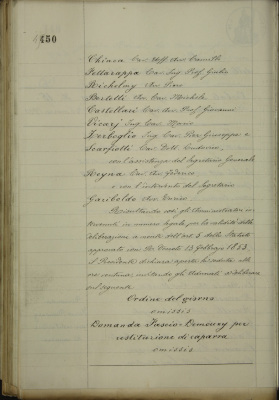 450
Chiesa Cav. Uff. Avv. Camillo
Pettarappa Cav. Ing. Prof. Giulio
Richelmy Avv. Piero
Bertetti Avv. Cav. Michele
Castellari Cav. Avv. Prof. Giovanni
Vicarj Ing. Cav. Mario
Zerboglio Ing. Cav. Pier Giuseppe e
Scarfiotti Cav. Dott. Lodovico,
coll'assistenza del Segretario Generale
Reyna Cav. Avv. Federico
e con l'intervento del Segretario
Garibaldo Avv. Enrico.
Riscontrando così gli Amministratori in-
tervenuti in numero legale per la validità delle
deliberazioni a mente dell'art. 5 dello Statuto
approvato con R. Decreto 13 Febbraio 1853,
il Presidente dichiara aperta la seduta alle
ore, invitando gli Adunati a deliberare
sul seguente
Ordine del giorno
omissis
Domanda Fascio-Demoury per
restituzione di caparra
omissis